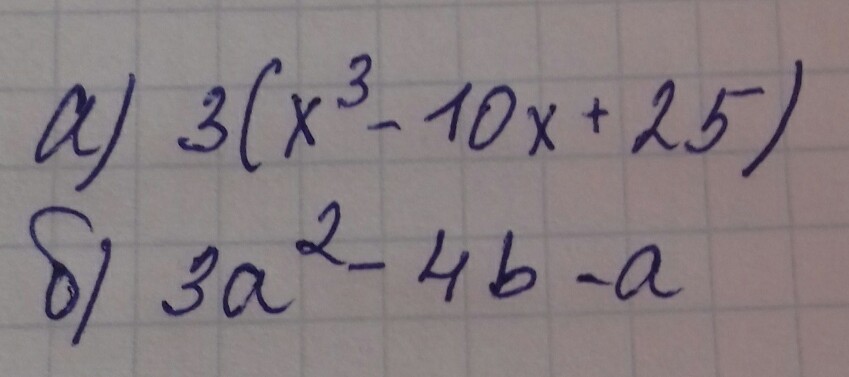 а) 3(x³ - 10x + 25)
б) 3a² - 4b - a